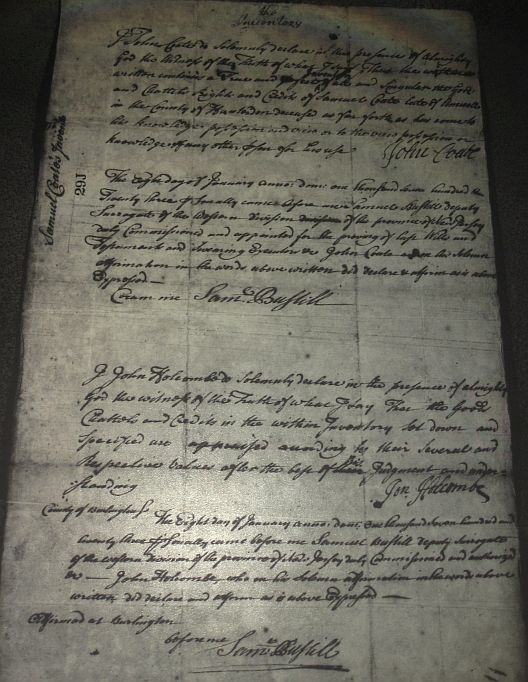 the
Inventory
I John Coate do Solemnly declare in the presence of Almighty
God the Witness of the Truth of what I say That the within
written contains a True and perfect of all and Singular the Goods
and Chattels Rights and Credits of Samuel Coate late of
in the County of deceased as far forth as has come to
his knowledge possession and view or to the view possession or
knowledge of any other for his use
John Coate
The Eight day of January anno: dom: one thousand seven hundred &
Twenty three personally came before me Samuel Bustill deputy
Surrogate of the Western division of the province of New Jersey
duly Commissioned and appointed for the proving of last Wills and
Testaments and swearing Executors &c John Coate who on his Solemn
affirmation in the words above written did declare & affirm as is above
Expressed —
Coram me Sam: Bustill
Samuel Coate's Invent
29J
I John Holcombe do Solemnly declare in the presence of almighty
God the witness of the Truth of what I say That the Good
Chattels and Credits in the within Inventory set down and
specified are appraised according to their Several and
Respective values after the best of his Judgment and under
standing
Jon Holcombe
County of Burlington ss.
The Eight day of January anno: dom: one thousand Seven hundred and
twenty three personally came before me Samuel Bustill deputy Surrogate
of the western division of the province of New Jersey duly Commissioned and authorized
&c — John Holcombe, who on his Solemn affirmation in the words above
written did declare and affirm as is above Expressed —
Affirmed at Burlington
before me Sam: Bustill